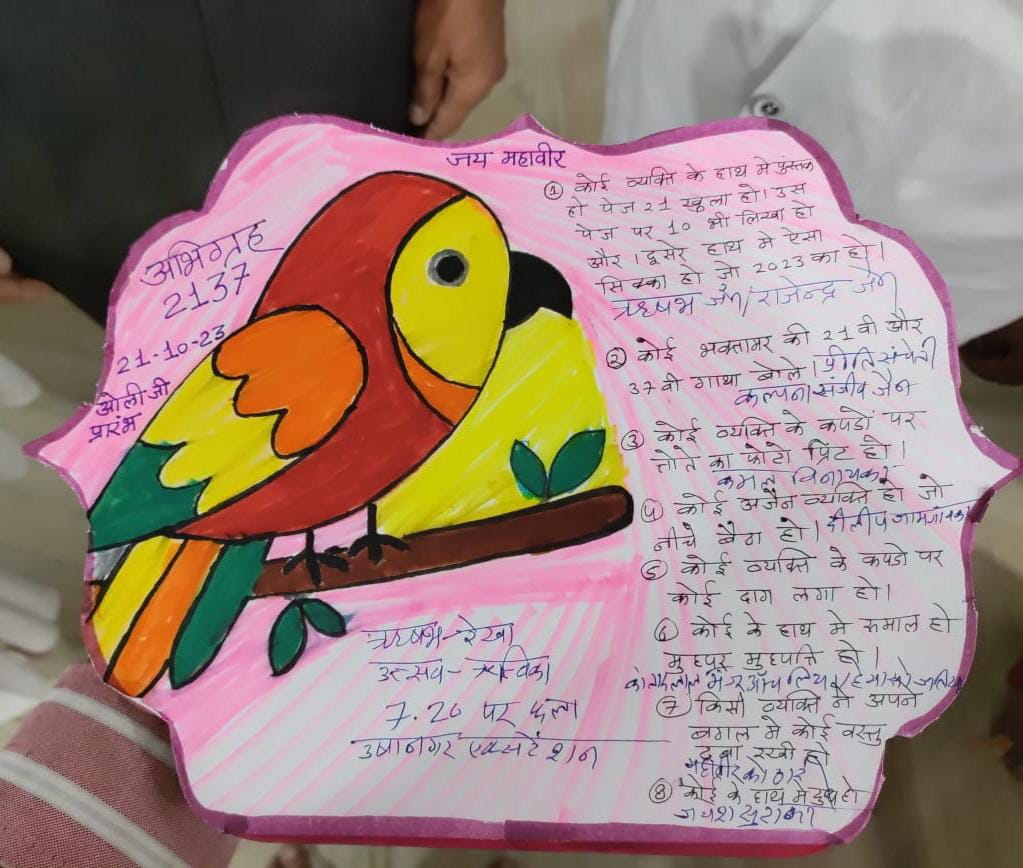 जय महावीर
अभिग्रह
2137
21-10-23
ओली जी
प्रारंभ
① कोई व्यक्ति के हाथ मे पुस्तक
हो पेज 21 खुला हो। उस
पेज पर 10 भी लिखा हो
और । दूसरे हाथ मे ऐसा
सिक्का हो जो 2023 का हो।
ऋषभ जैन/राजेन्द्र जैन
② कोई भक्तामर की 21 वी और
37 वी गाथा बोले। प्रीति संचेती
कल्पना संजीव जैन
③ कोई व्यक्ति के कपडों पर
तोते का फोटो प्रिंट हो।
कमल विनायका
④ कोई अजैन व्यक्ति हो जो
नीचे बैठा हो। दीलीप
⑤ कोई व्यक्ति के कपडो पर
कोई दाग लगा हो।
⑥ कोई के हाथ मे रुमाल हो
मुहपर मुहपत्ति हो।
⑦ किसी व्यक्ति ने अपने
बगल मे कोई वस्तु
दबा रखी हो
⑧ कोई के हाथ मे दुध हो
जयश सुराना
ऋषभ-रेखा
उत्सव-
7.20 पर फला
उषानगर एक्सटेंशन